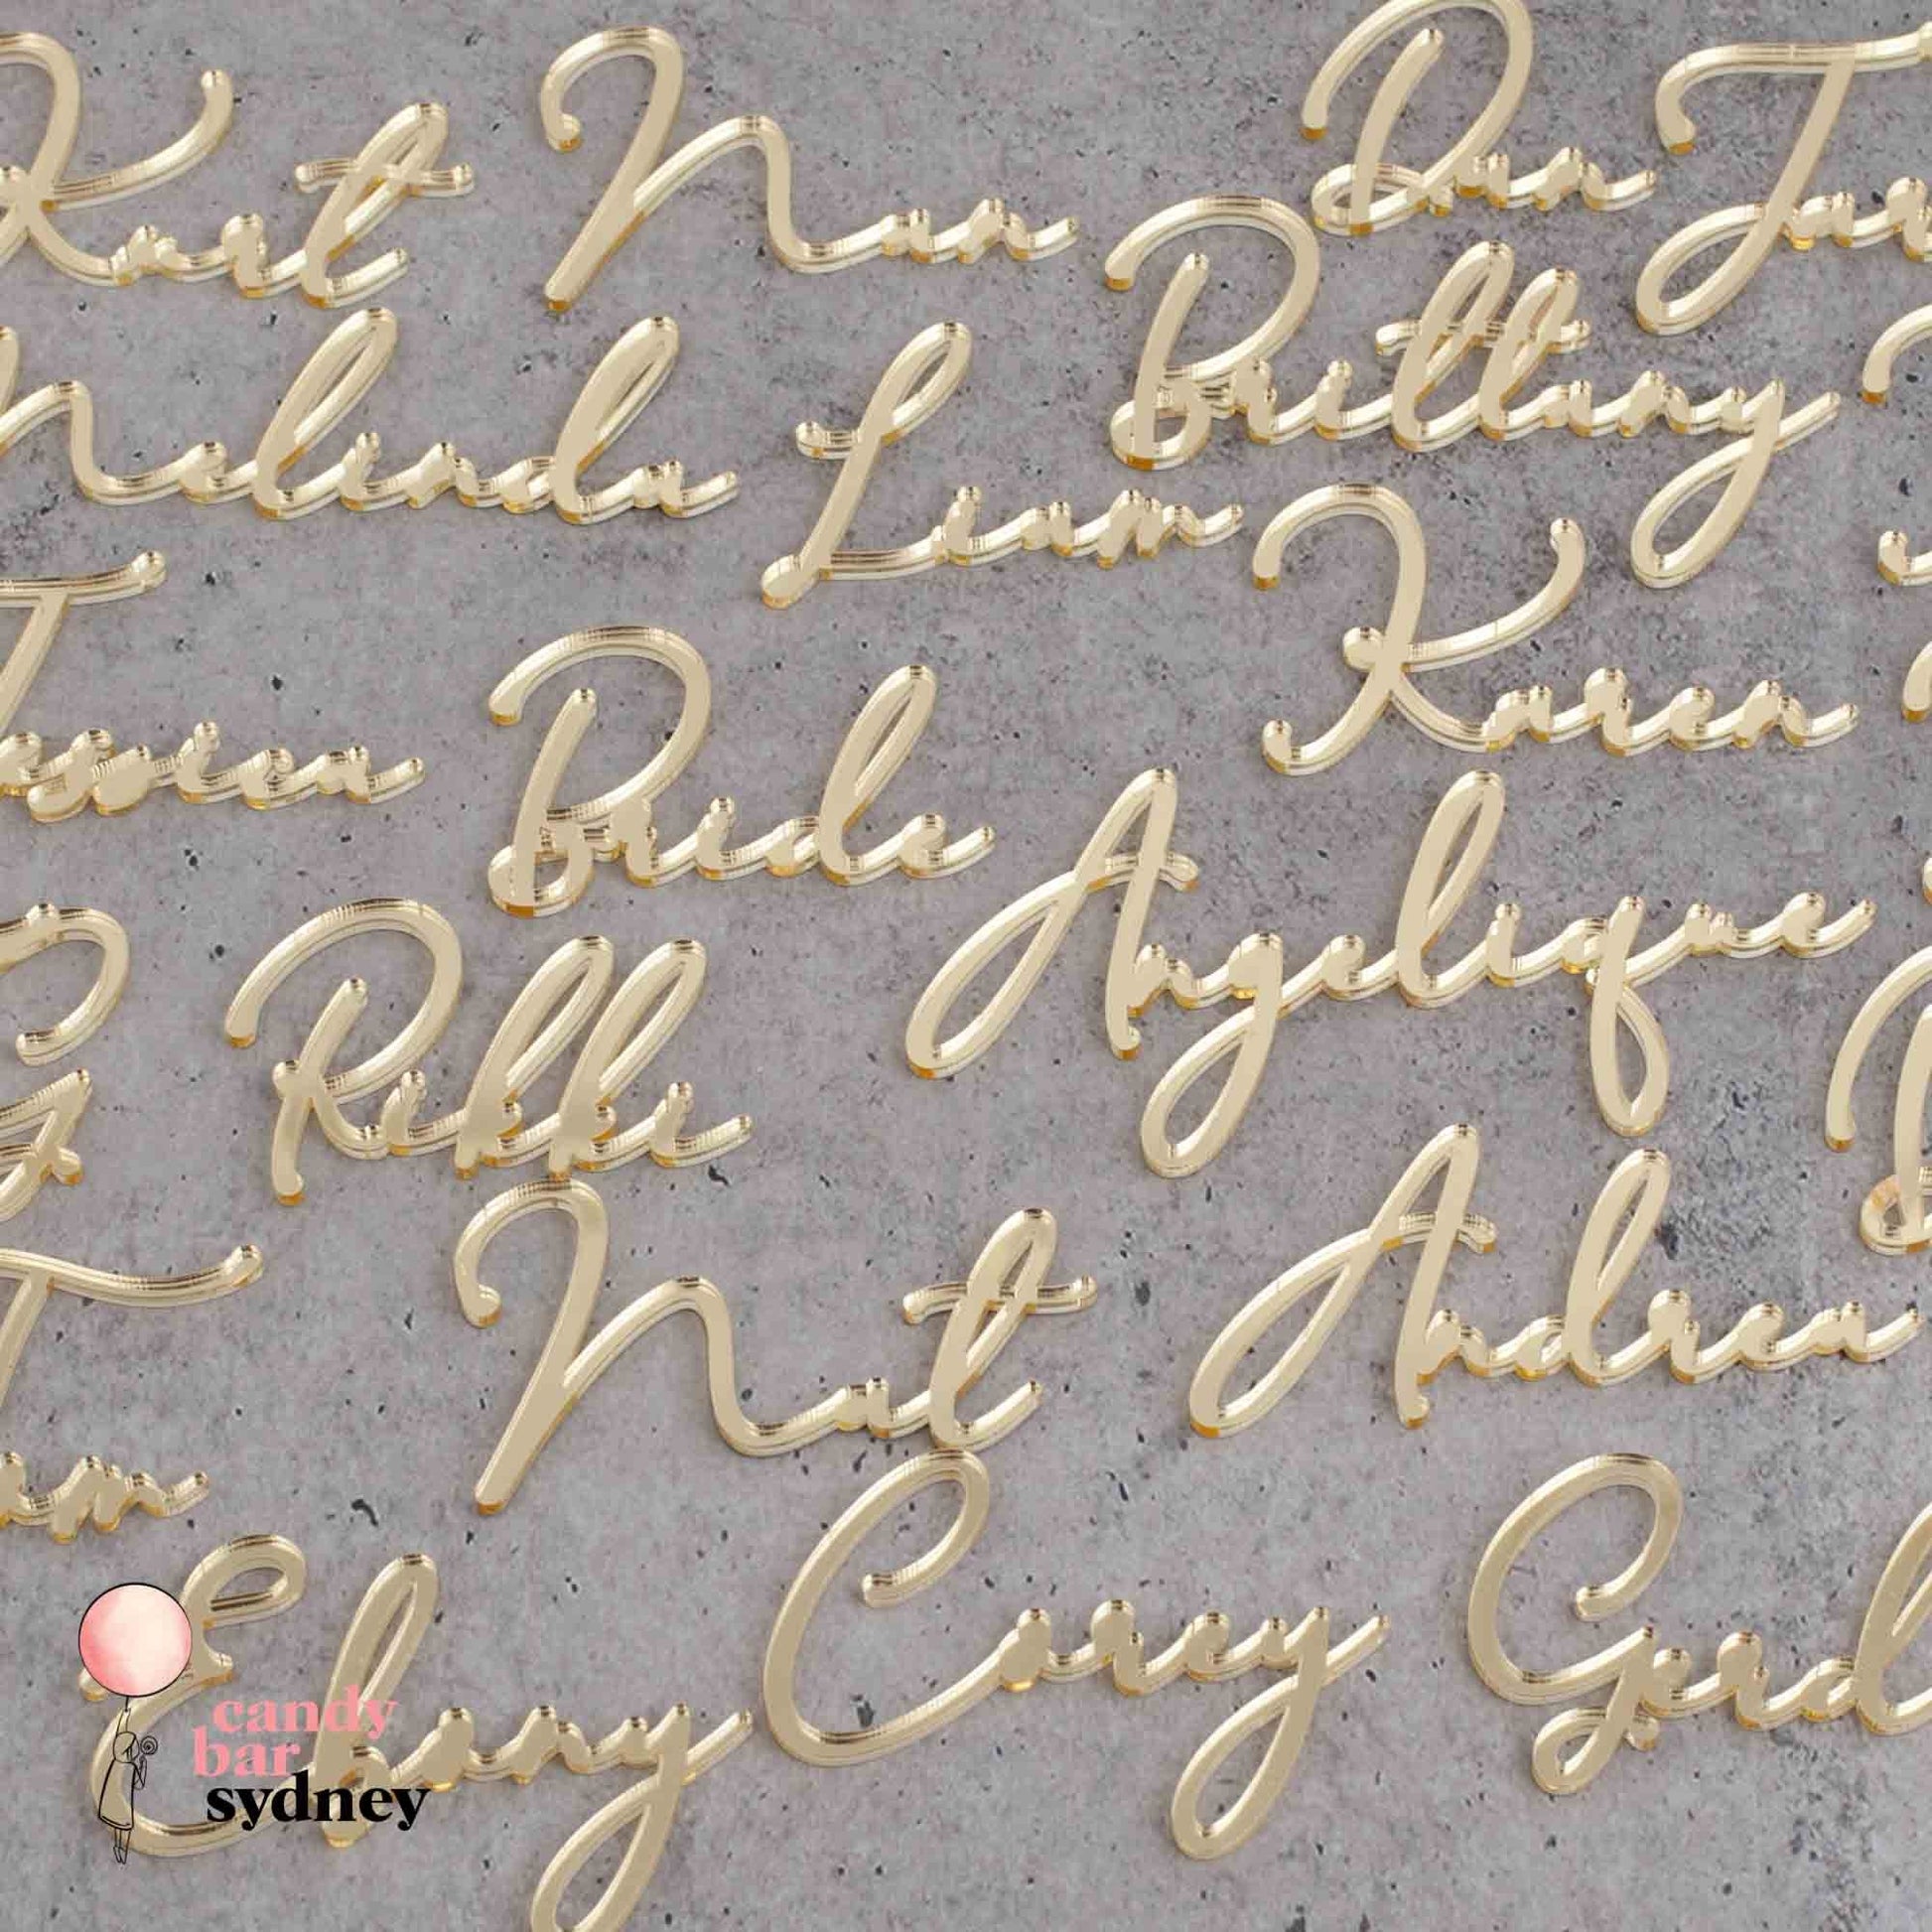 Kurt
Nan
Dan
Melinda
Liam
Brittany
Jessica
Bride
Karen
Rikki
Angelique
Nat
Andrea
Ebony
Corey
candy
bar
sydney